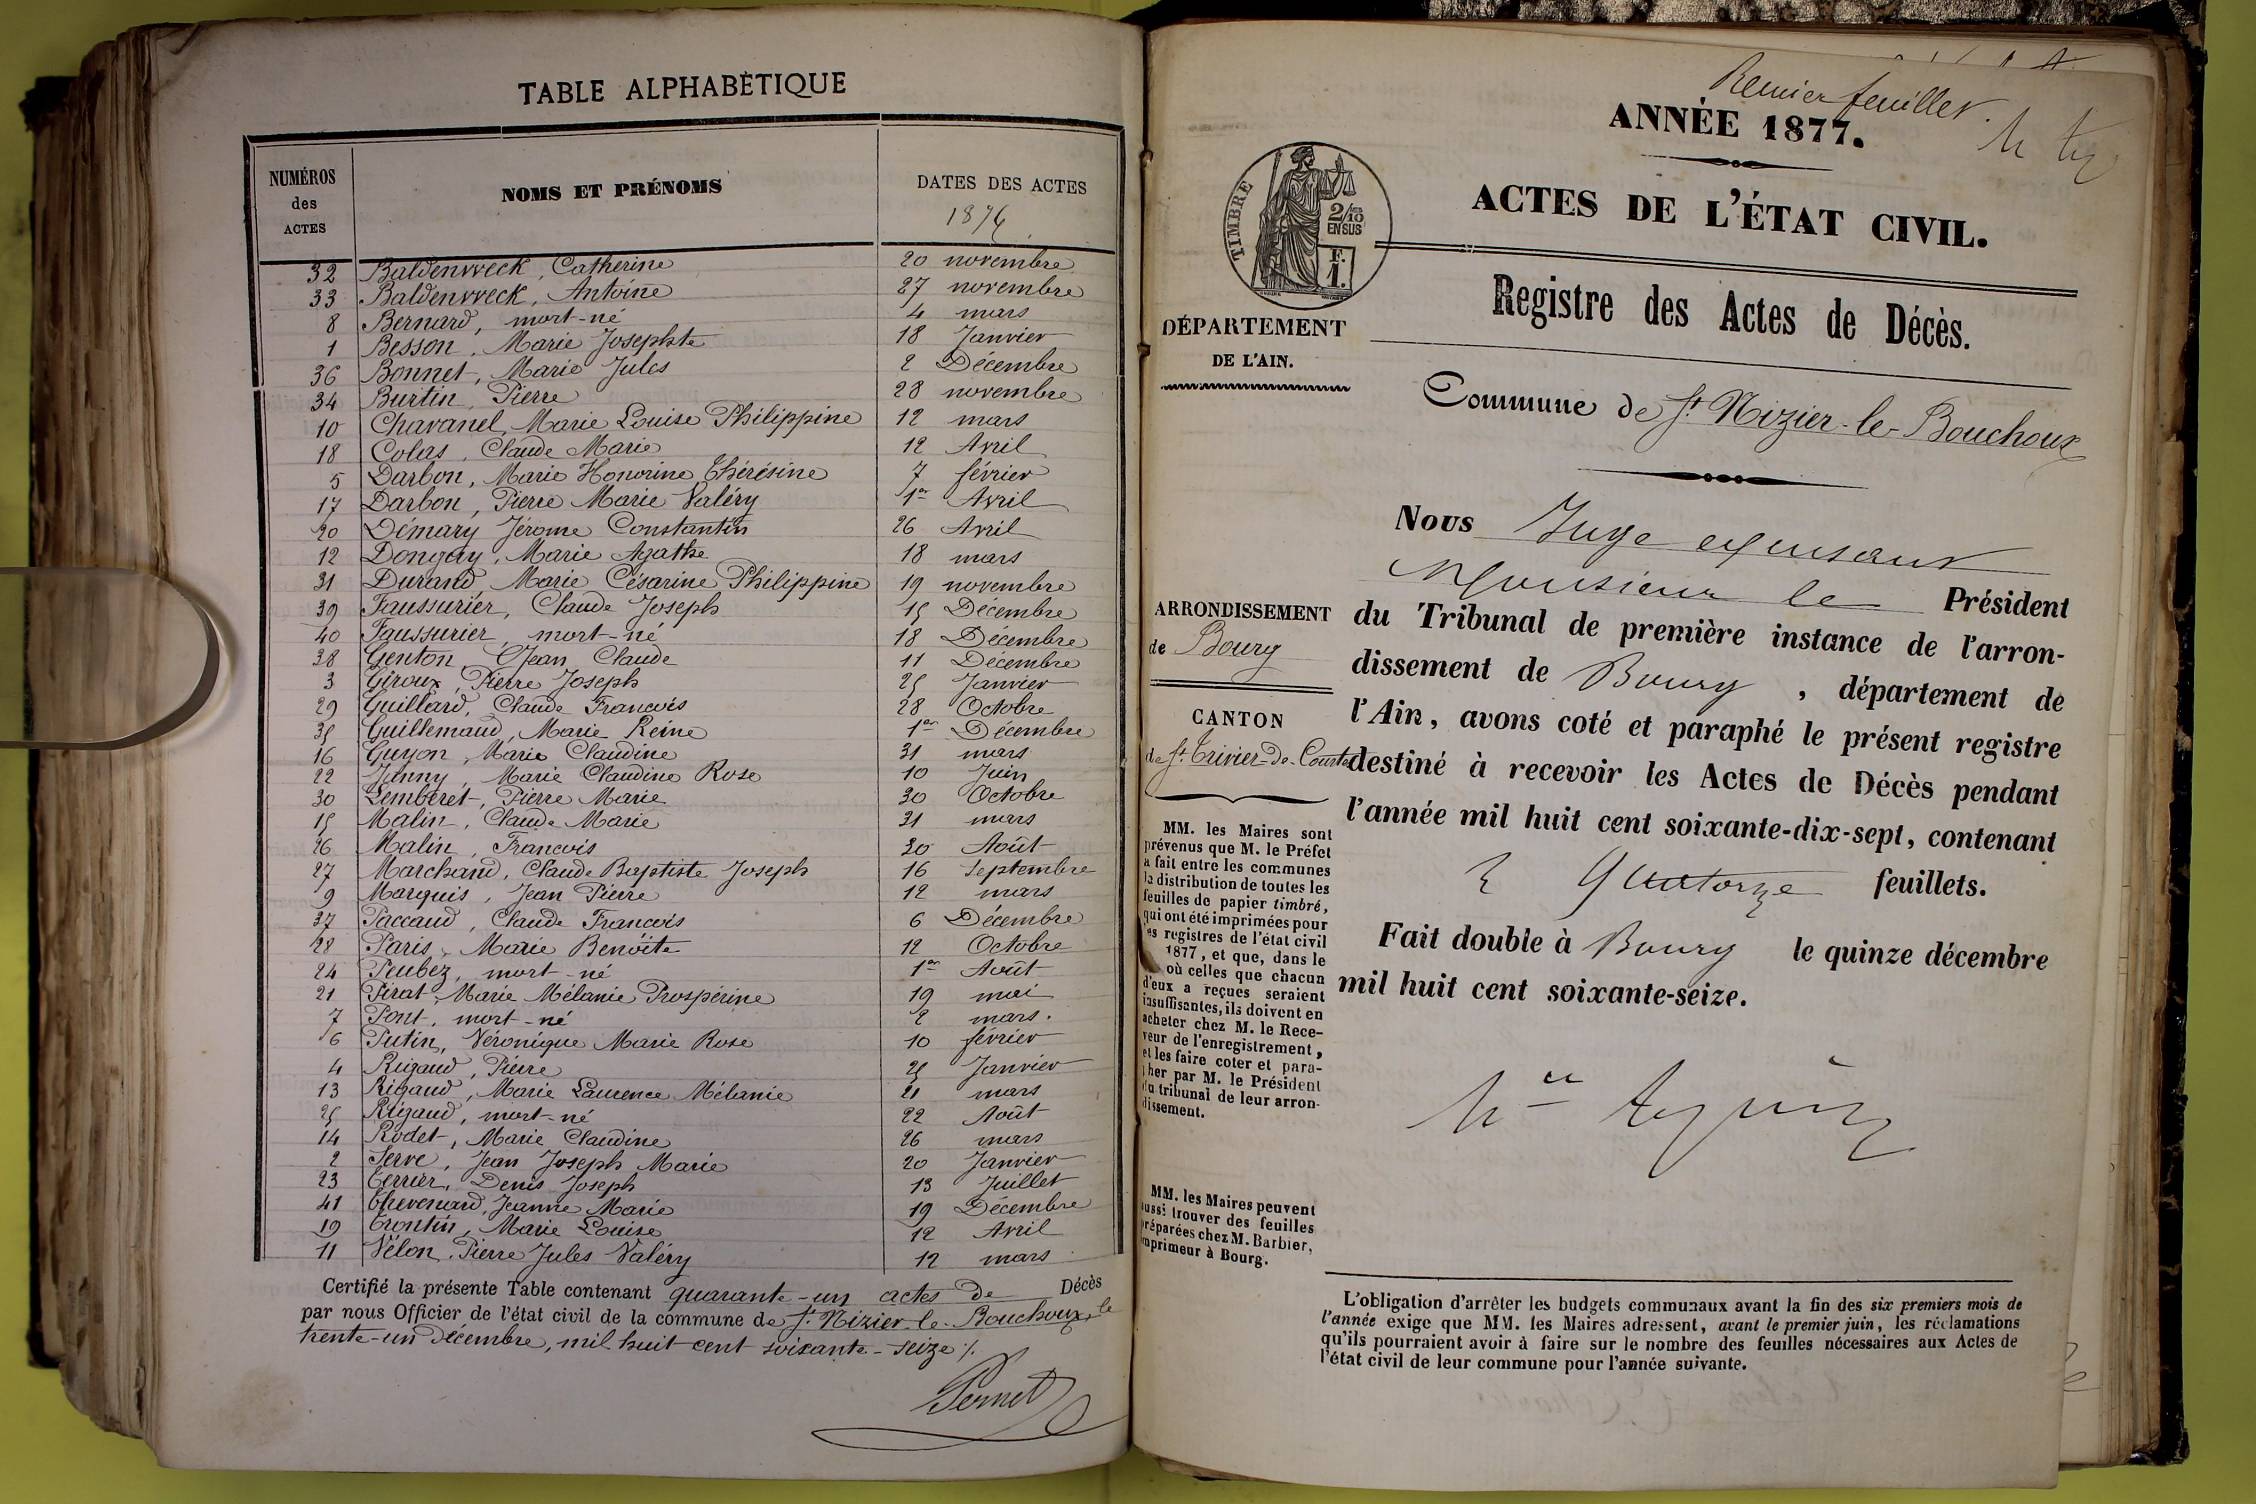 TABLE ALPHABÉTIQUE
NUMÉROS des ACTES NOMS ET PRÉNOMS DATES DES ACTES 1876
32 Baldenweck, Catherine 20 novembre
33 Baldenweck, Antoine 27 novembre
8 Bernard, mort-né 4 mars
1 Besson, Marie Josephte 18 Janvier
36 Bonnet, Marie Jules 2 Décembre
34 Burtin, Pierre 28 novembre
10 Chavanel, Marie Louise Philippine 12 mars
18 Colas, Claude Marie 12 Avril
5 Darbon, Marie Honorine Thérésine 7 février
17 Darbon, Pierre Marie Valéry 1er Avril
20 Démary Jérome Constantin 26 Avril
12 Dongay, Marie Agathe 18 mars
31 Durand Marie Césarine Philippine 19 novembre
39 Faussurier, Claude Joseph 15 Décembre
40 Faussurier, mort-né 18 Décembre
38 Genton, Jean Claude 11 Décembre
3 Giroux, Pierre Joseph 25 Janvier
29 Guillard, Claude François 28 Octobre
35 Guillemaud, Marie Reine 1er Décembre
16 Guyon, Marie Claudine 31 mars
22 Janny, Marie Claudine Rose 10 Juin
30 Lemberet, Pierre Marie 30 Octobre
15 Malin, Claude Marie 31 mars
26 Malin, François 30 Août
27 Marchand, Claude Baptiste Joseph 16 Septembre
9 Marquis, Jean Pierre 12 mars
37 Paccaud, Claude François 6 Décembre
28 Paris, Marie Benoîte 12 Octobre
24 Peubez, mort-né 1er Août
21 Pirat, Marie Mélanie Prospérine 19 mai
7 Pont, mort-né 2 mars.
6 Putin, Véronique Marie Rose 10 février
4 Rigaud, Pierre 25 Janvier
13 Rigaud, Marie Laurence Mélanie 21 mars
25 Rigaud, mort-né 22 Août
14 Rodet, Marie Claudine 26 mars
2 Serve, Jean Joseph Marie 20 Janvier
23 Terrier, Denis Joseph 13 Juillet
41 Thevenard, Jeanne Marie 19 Décembre
19 Trontin, Marie Louise 12 Avril
11 Vélon, Pierre Jules Valéry 12 mars
Certifié la présente Table contenant quarante-un actes de Décès
par nous Officier de l'état civil de la commune de St Nizier-le-Bouchoux, le
trente-un décembre, mil huit cent soixante-seize %.
Pernet
Premier feuillet.
ANNÉE 1877.
ACTES DE L'ÉTAT CIVIL.
TIMBRE
2/10
EN SUS
F.
1.
Registre des Actes de Décès.
DÉPARTEMENT
DE L'AIN.
Commune de St Nizier-le-Bouchoux
Nous Juge expensant
Monsieur le Président
du Tribunal de première instance de l'arron-
dissement de Bourg, département de
l'Ain, avons coté et paraphé le présent registre
destiné à recevoir les Actes de Décès pendant
l'année mil huit cent soixante-dix-sept, contenant
Quatorze feuillets.
Fait double à Bourg le quinze décembre
mil huit cent soixante-seize.
ARRONDISSEMENT
de Bourg
CANTON
de St Trivier-de-Courtes
MM. les Maires sont
prévenus que M. le Préfet
a fait entre les communes
la distribution de toutes les
feuilles de papier timbré,
qui ont été imprimées pour
les registres de l'état civil
1877, et que, dans le
où celles que chacun
d'eux a reçues seraient
insuffisantes, ils doivent en
acheter chez M. le Rece-
veur de l'enregistrement,
et les faire coter et para-
pher par M. le Président
du tribunal de leur arron-
dissement.
MM. les Maires peuvent
aussi trouver des feuilles
préparées chez M. Barbier,
imprimeur à Bourg.
L'obligation d'arrêter les budgets communaux avant la fin des six premiers mois de
l'année exige que MM. les Maires adressent, avant le premier juin, les réclamations
qu'ils pourraient avoir à faire sur le nombre des feuilles nécessaires aux Actes de
l'état civil de leur commune pour l'année suivante.